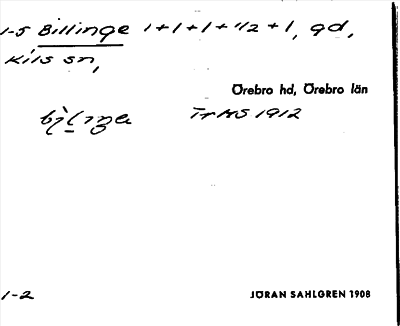 1-5 Billinge 1+1+1+1/2+1, gd,
Kils sn,
Örebro hd, Örebro län
TrHS 1912
1-2
JÖRAN SAHLGREN 1908